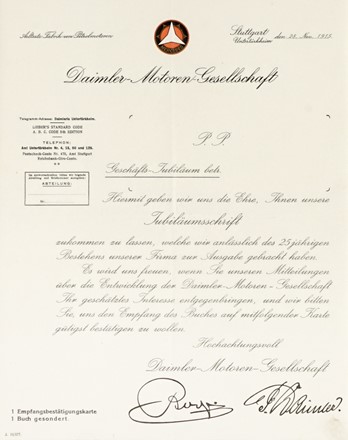 Aelteste Fabrik von Petrolmotoren
Stuttgart
Untertürkheim
den 28. Nov. 1915.
Daimler-Motoren-Gesellschaft
Telegramm-Adresse: Daimlera Untertürkheim.
LIEBER'S STANDARD CODE
A. B. C. CODE 5th EDITION
TELEPHON:
Amt Untertürkheim Nr.
Postscheck-Conto Nr. 470, Amt Stuttgart
Reichsbank-Giro-Conto.
ABTEILUNG:
P. P.
Geschäfts-Jubiläum betr.
Hiermit geben wir uns die Ehre, Ihnen unsere
Jubiläumsschrift
zukommen zu lassen, welche wir anlässlich des 25 jährigen
Bestehens unserer Firma zur Ausgabe gebracht haben.
Es wird uns freuen, wenn Sie unseren Mitteilungen
über die Entwicklung der Daimler-Motoren-Gesellschaft
Ihr geschätztes Interesse entgegenbringen, und wir bitten
Sie, uns den Empfang des Buches auf mitfolgender Karte
gütigst bestätigen zu wollen.
Hochachtungsvoll
Daimler-Motoren-Gesellschaft
1 Empfangsbestätigungskarte
1 Buch gesondert.